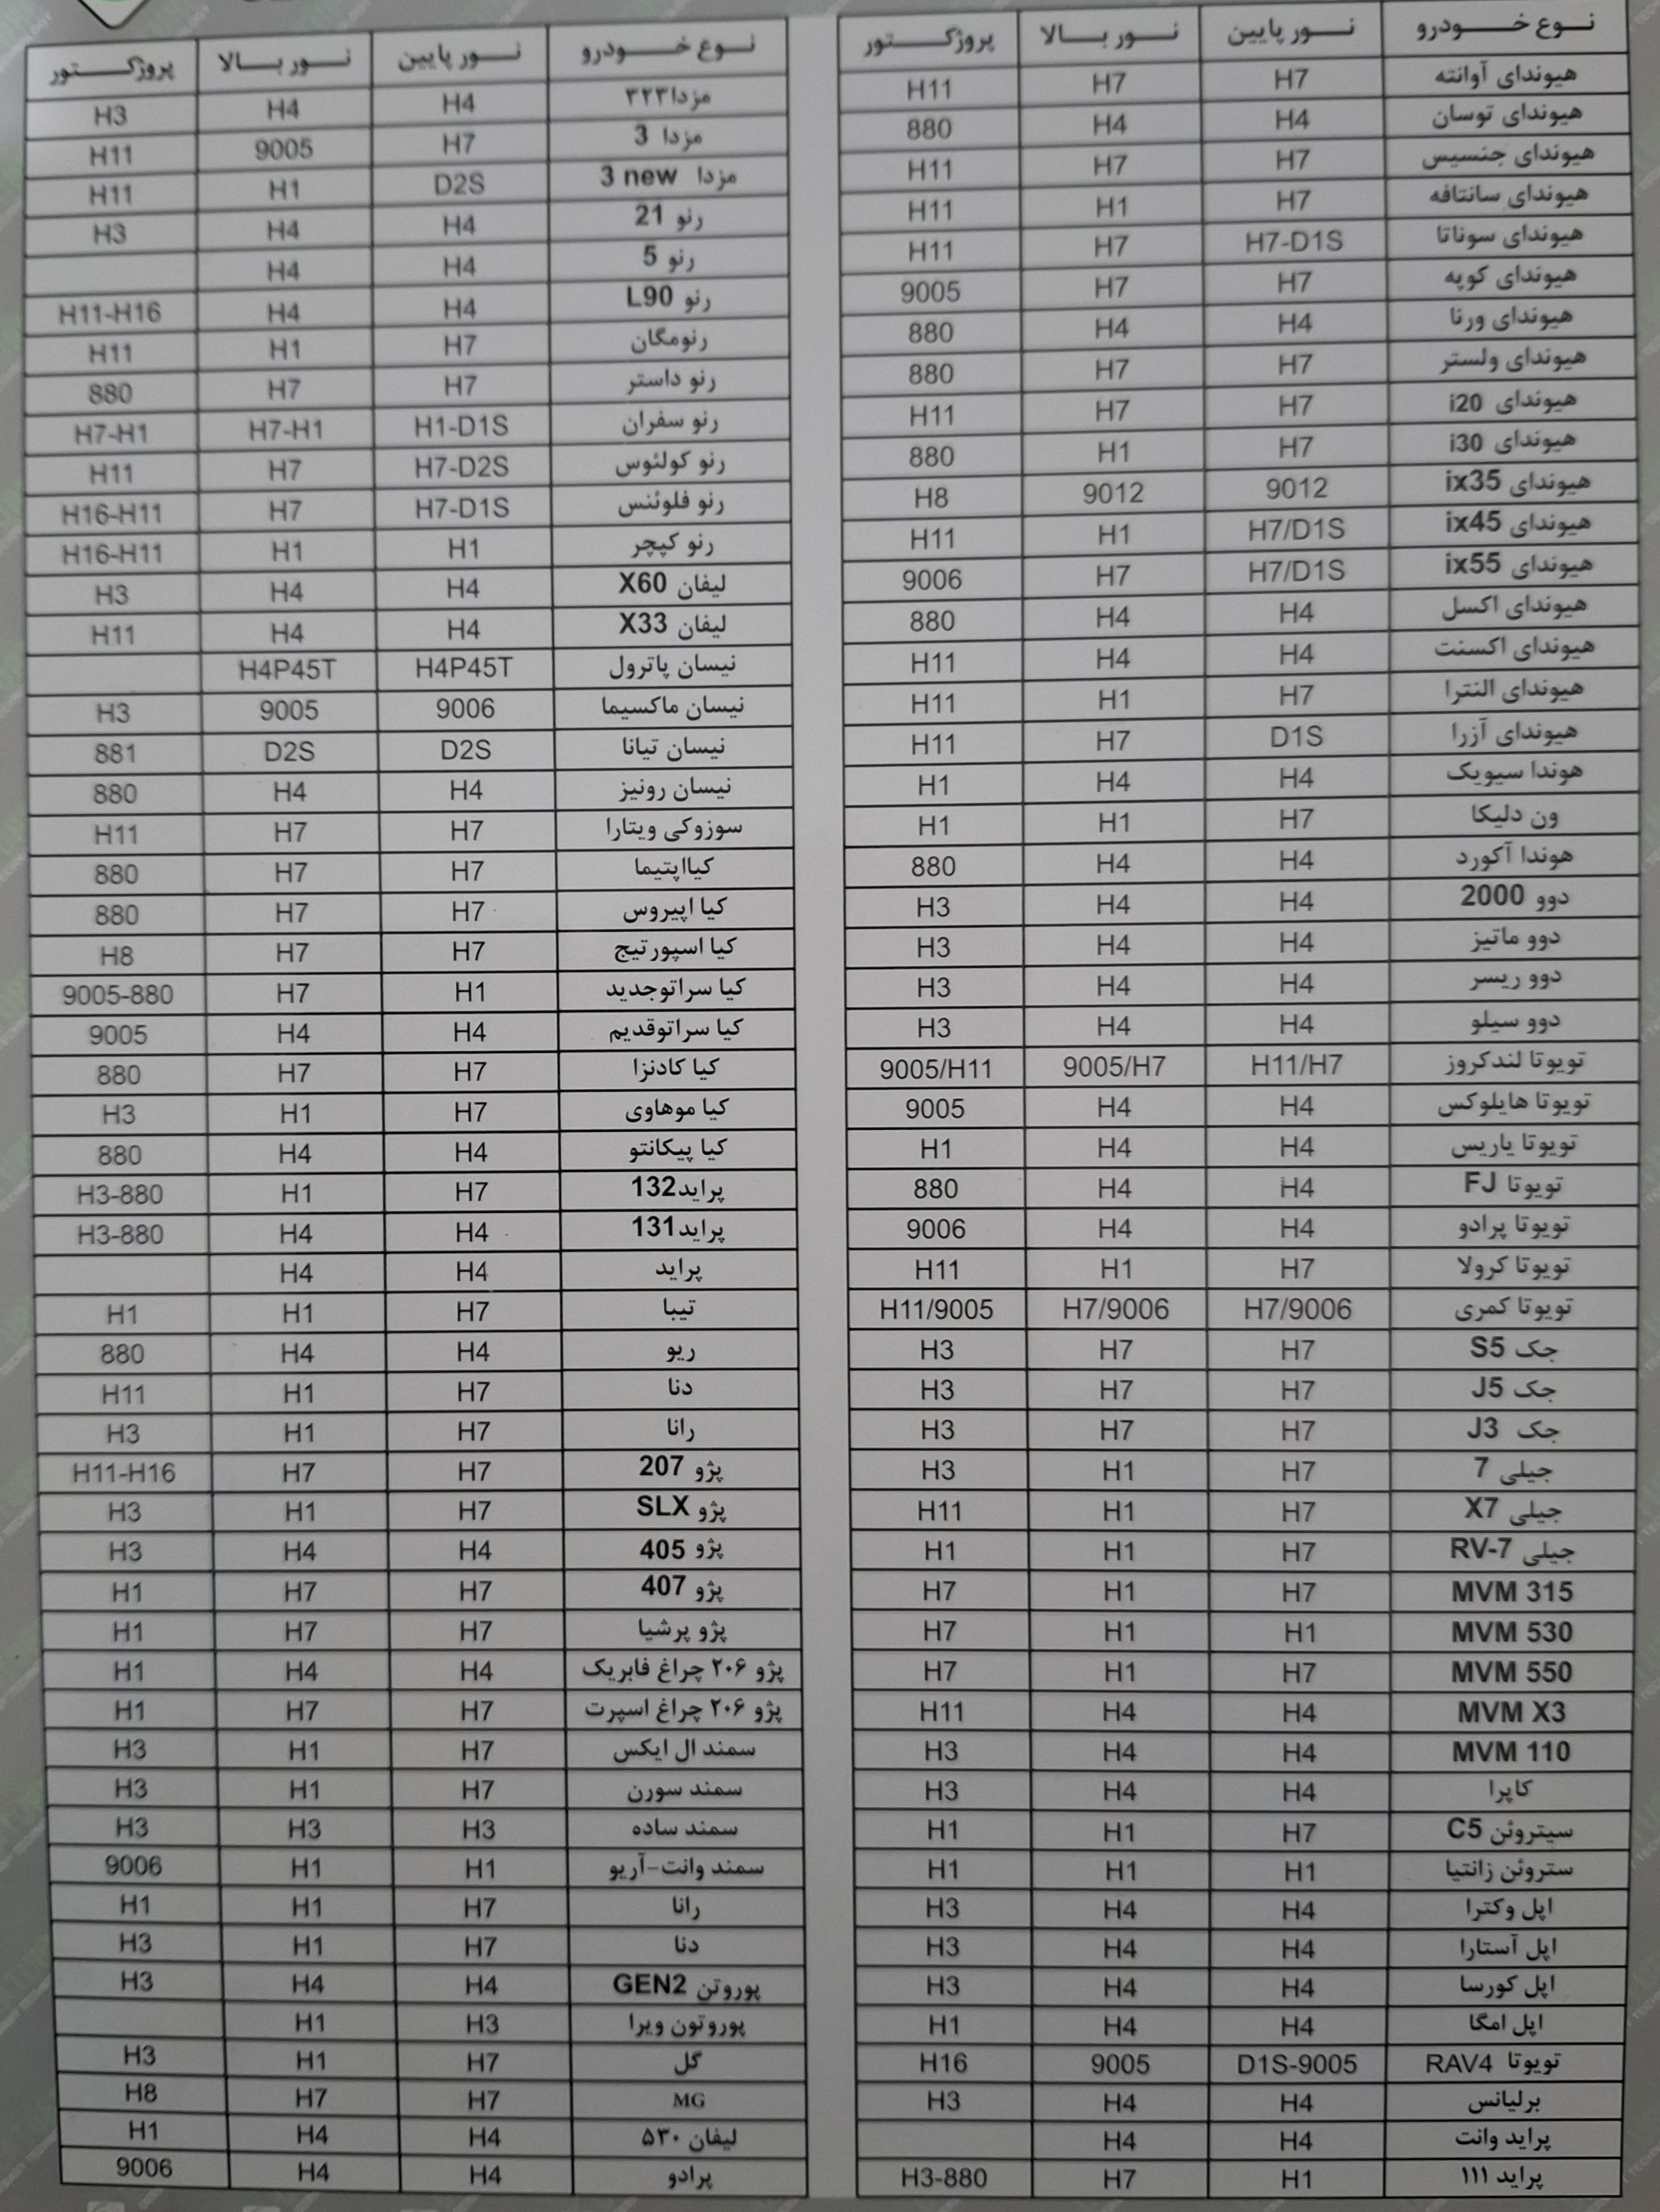 نوع خودرو نور پایین نور بالا پروژکتور
هیوندای آوانته H7 H7 H11
هیوندای توسان H4 H4 880
هیوندای جنسیس H7 H7 H11
هیوندای سانتافه H7 H1 H11
هیوندای سوناتا H7-D1S H7 H11
هیوندای کوپه H7 H7 9005
هیوندای ورنا H4 H4 880
هیوندای ولستر H7 H7 880
هیوندای i20 H7 H7 H11
هیوندای i30 H7 H1 880
هیوندای ix35 9012 9012 H8
هیوندای ix45 H7/D1S H1 H11
هیوندای ix55 H7/D1S H7 9006
هیوندای اکسل H4 H4 880
هیوندای اکسنت H4 H4 H11
هیوندای النترا H7 H1 H11
هیوندای آزرا D1S H7 H11
هوندا سیویک H4 H4 H1
ون دلیکا H7 H1 H1
هوندا آکورد H4 H4 880
دوو 2000 H4 H4 H3
دوو ماتیز H4 H4 H3
دوو ریسر H4 H4 H3
دوو سیلو H4 H4 H3
تویوتا لندکروز H11/H7 9005/H7 9005/H11
تویوتا هایلوکس H4 H4 9005
تویوتا یاریس H4 H4 H1
تویوتا FJ H4 H4 880
تویوتا پرادو H4 H4 9006
تویوتا کرولا H7 H1 H11
تویوتا کمری H7/9006 H7/9006 H11/9005
جک S5 H7 H7 H3
جک J5 H7 H7 H3
جک J3 H7 H7 H3
جیلی 7 H7 H1 H3
جیلی X7 H7 H1 H11
جیلی RV-7 H7 H1 H1
MVM 315 H7 H1 H7
MVM 530 H1 H1 H7
MVM 550 H7 H1 H7
MVM X3 H4 H4 H11
MVM 110 H4 H4 H3
کاپرا H4 H4 H3
سیتروئن C5 H7 H1 H1
ستروئن زانتیا H1 H1 H1
اپل وکترا H4 H4 H3
اپل آستارا H4 H4 H3
اپل کورسا H4 H4 H3
اپل امگا H4 H4 H1
تویوتا RAV4 D1S-9005 9005 H16
برلیانس H4 H4 H3
پراید وانت H4 H4
پراید ۱۱۱ H1 H7 H3-880
نوع خودرو نور پایین نور بالا پروژکتور
مزدا۳۲۳ H4 H4 H3
مزدا 3 H7 9005 H11
مزدا 3 new D2S H1 H11
رنو 21 H4 H4 H3
رنو 5 H4 H4
رنو L90 H4 H4 H11-H16
رنومگان H7 H1 H11
رنو داستر H7 H7 880
رنو سفران H1-D1S H7-H1 H7-H1
رنو کولئوس H7-D2S H7 H11
رنو فلوئنس H7-D1S H7 H16-H11
رنو کپچر H1 H1 H16-H11
لیفان X60 H4 H4 H3
لیفان X33 H4 H4 H11
نیسان پاترول H4P45T H4P45T
نیسان ماکسیما 9006 9005 H3
نیسان تیانا D2S D2S 881
نیسان رونیز H4 H4 880
سوزوکی ویتارا H7 H7 H11
کیااپتیما H7 H7 880
کیا اپیروس H7 H7 880
کیا اسپورتیج H7 H7 H8
کیا سراتوجدید H1 H7 9005-880
کیا سراتوقدیم H4 H4 9005
کیا کادنزا H7 H7 880
کیا موهاوی H7 H1 H3
کیا پیکانتو H4 H4 880
پراید132 H7 H1 H3-880
پراید131 H4 H4 H3-880
پراید H4 H4
تیبا H7 H1 H1
ریو H4 H4 880
دنا H7 H1 H11
رانا H7 H1 H3
پژو 207 H7 H7 H11-H16
پژو SLX H7 H1 H3
پژو 405 H4 H4 H3
پژو 407 H7 H7 H1
پژو پرشیا H7 H7 H1
پژو ۲۰۶ چراغ فابریک H4 H4 H1
پژو ۲۰۶ چراغ اسپرت H7 H7 H1
سمند ال ایکس H7 H1 H3
سمند سورن H7 H1 H3
سمند ساده H3 H3 H3
سمند وانت-آریو H1 H1 9006
رانا H7 H1 H1
دنا H7 H1 H3
پوروتن GEN2 H4 H4 H3
پوروتون ویرا H3 H1
گل H7 H1 H3
MG H7 H7 H8
لیفان ۵۳۰ H4 H4 H1
پرادو H4 H4 9006